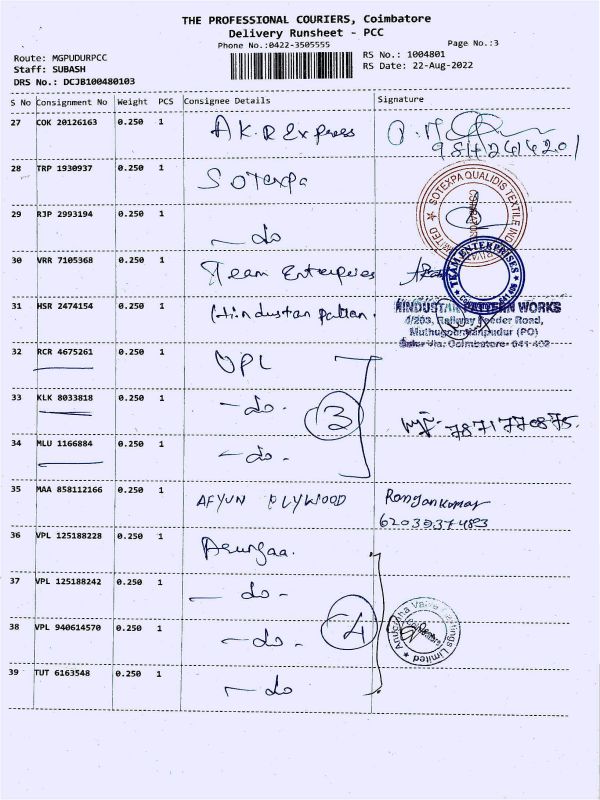 THE PROFESSIONAL COURIERS, Coimbatore
Delivery Runsheet - PCC
Phone No.:0422-3505555
Page No.:3
Route: MGPUDURPCC
RS No.: 1004801
Staff: SUBASH
RS Date: 22-Aug-2022
DRS No.: DCJB100480103
S No Consignment No Weight PCS Consignee Details Signature
27 COK 20126163 0.250 1 A.K.R Express
28 TRP 1930937 0.250 1 Sotexpa
SOTEXPA QUALIDIS TEXTILE
29 RJP 2993194 0.250 1 - do
30 VRR 7105368 0.250 1 Team Enterprises
TEAM ENTERPRISES
31 HSR 2474154 0.250 1 Hindustan pattern.
HINDUSTAN PATTERN WORKS
4/203, Railway Feeder Road,
32 RCR 4675261 0.250 1 UPL
33 KLK 8033818 0.250 1 - do. 3 7871770875.
34 MLU 1166884 0.250 1 - do.
35 MAA 858112166 0.250 1 AFYUN PLYWOOD Ranjankumar
36 VPL 125188228 0.250 1
37 VPL 125188242 0.250 1 - do -
38 VPL 940614570 0.250 1 - do. 4
39 TUT 6163548 0.250 1 - do